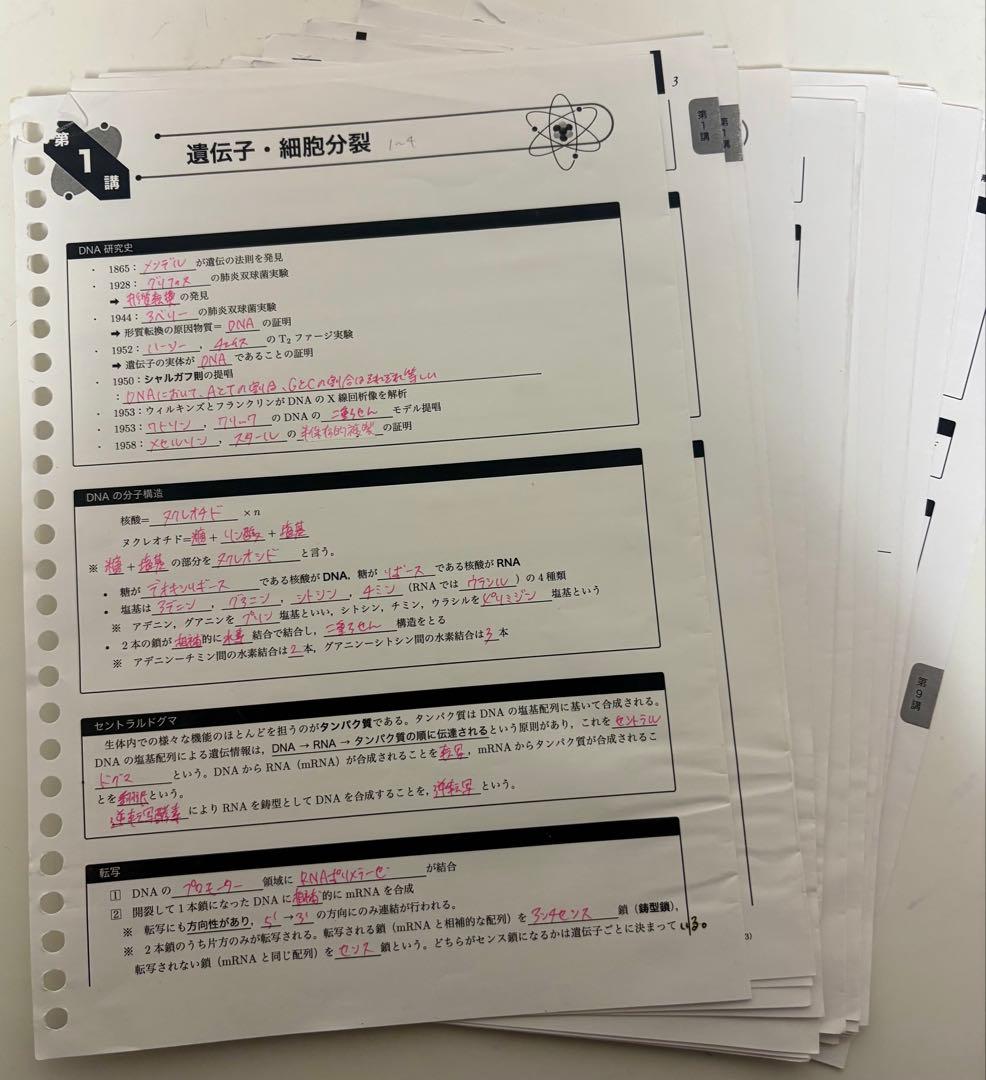 第1講
遺伝子・細胞分裂 1〜4
DNA 研究史
・ 1865：メンデル が遺伝の法則を発見
・ 1928：グリフィス の肺炎双球菌実験
➡ 形質転換 の発見
・ 1944：アベリー の肺炎双球菌実験
➡ 形質転換の原因物質＝ DNA の証明
・ 1952：ハーシー，チェイス の T₂ ファージ実験
➡ 遺伝子の実体が DNA であることの証明
・ 1950：シャルガフ則の提唱
：DNAにおいて、AとTの割合、GとCの割合はそれぞれ等しい
・ 1953：ウィルキンズとフランクリンが DNA の X 線回折像を解析
・ 1953：ワトソン，クリック の DNA の 二重らせん モデル提唱
・ 1958：メセルソン，スタール の 半保存的複製 の証明
DNA の分子構造
核酸＝ ヌクレオチド ×n
ヌクレオチド＝糖＋リン酸＋塩基
※ 糖＋塩基 の部分を ヌクレオシド と言う。
・ 糖が デオキシリボース である核酸が DNA，糖が リボース である核酸が RNA
・ 塩基は アデニン，グアニン，シトシン，チミン（RNA では ウラシル）の 4 種類
※ アデニン，グアニンを プリン 塩基といい，シトシン，チミン，ウラシルを ピリミジン 塩基という
・ 2 本の鎖が 相補 的に 水素 結合で結合し，二重らせん 構造をとる
※ アデニンーチミン間の水素結合は 2 本，グアニンーシトシン間の水素結合は 3 本
セントラルドグマ
生体内での様々な機能のほとんどを担うのがタンパク質である。タンパク質は DNA の塩基配列に基いて合成される。
DNA の塩基配列による遺伝情報は，DNA → RNA → タンパク質の順に伝達されるという原則があり，これを セントラル
ドグマ という。DNA から RNA（mRNA）が合成されることを 転写，mRNA からタンパク質が合成されるこ
とを 翻訳 という。
逆転写酵素 により RNA を鋳型として DNA を合成することを，逆転写 という。
転写
1 DNA の プロモーター 領域に RNAポリメラーゼ が結合
2 開裂して 1 本鎖になった DNA に 相補 的に mRNA を合成
※ 転写にも方向性があり，5' →3' の方向にのみ連結が行われる。
※ 2 本鎖のうち片方のみが転写される。転写される鎖（mRNA と相補的な配列）を アンチセンス 鎖（鋳型鎖），
転写されない鎖（mRNA と同じ配列）を センス 鎖という。どちらがセンス鎖になるかは遺伝子ごとに決まって いる。
3
第1講
第1講
第9講
3)